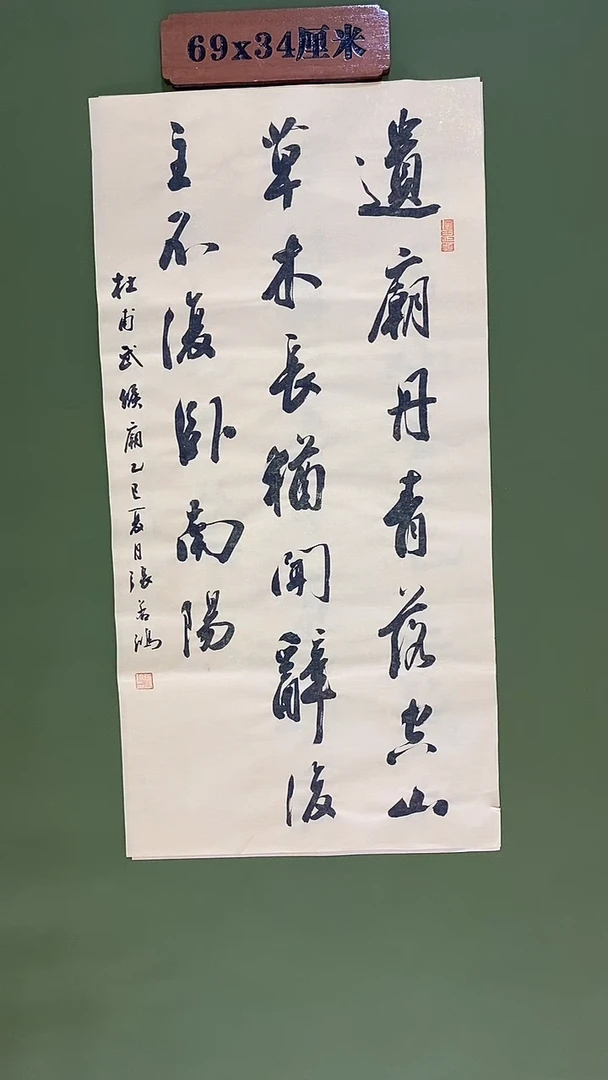 69x34厘米
遺廟丹青落空山
草木長猶聞辭後
主不復卧南陽
杜甫武候廟乙巳夏月張鴻